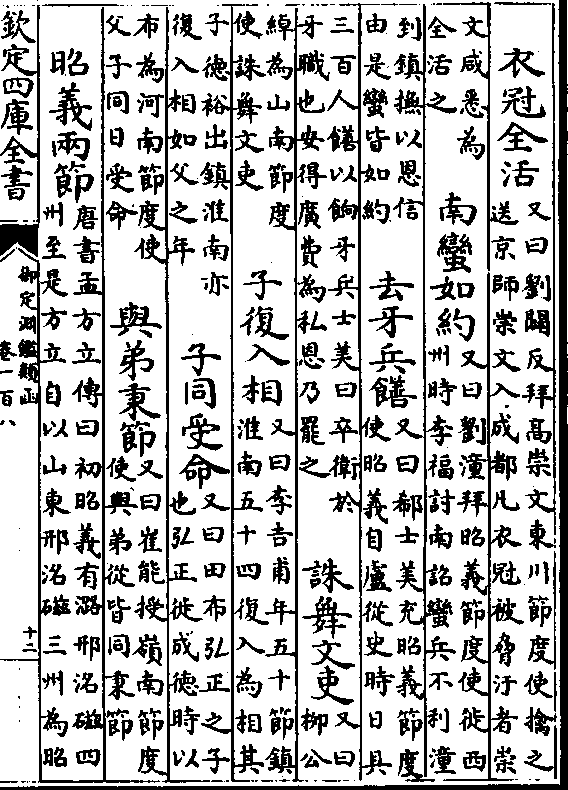 衣冠全活
又曰劉闢反拜髙崇文東川節度使擒之
送京師崇文入成都凡衣冠被脅汙者崇
文咸悉為
全活之
南蠻如約
又曰劉潼拜昭義節度使徙西
州時李福討南詔蠻兵不利潼
到鎮撫以恩信
由是蠻皆如約
去牙兵饍
又曰郗士美充昭義節度
使昭義自盧從史時日具
三百人饍以餉牙兵士美曰卒衛於
牙職也安得廣費為私恩乃罷之
誅舞文吏
又曰
柳公
綽為山南節度
使誅舞文吏
子復入相
又曰李吉甫年五十節鎮
淮南五十四復入為相其
子德裕出鎮淮南亦
復入相如父之年
子同受命
又曰田布弘正之子
也弘正徙成德時以
布為河南節度使
父子同日受命
與弟秉節
又曰崔能授嶺南節度
使與弟從皆同秉節
昭義兩節
唐書孟方立傳曰初昭義有潞邢洺磁四
州至是方立自以山東邢洺磁三州為昭
欽定四庫全書
御定淵鑑類函
卷一百八
十二